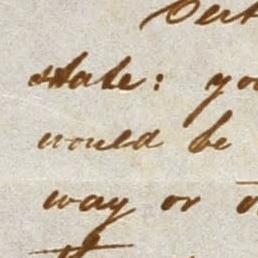 state: yo
would be
way or